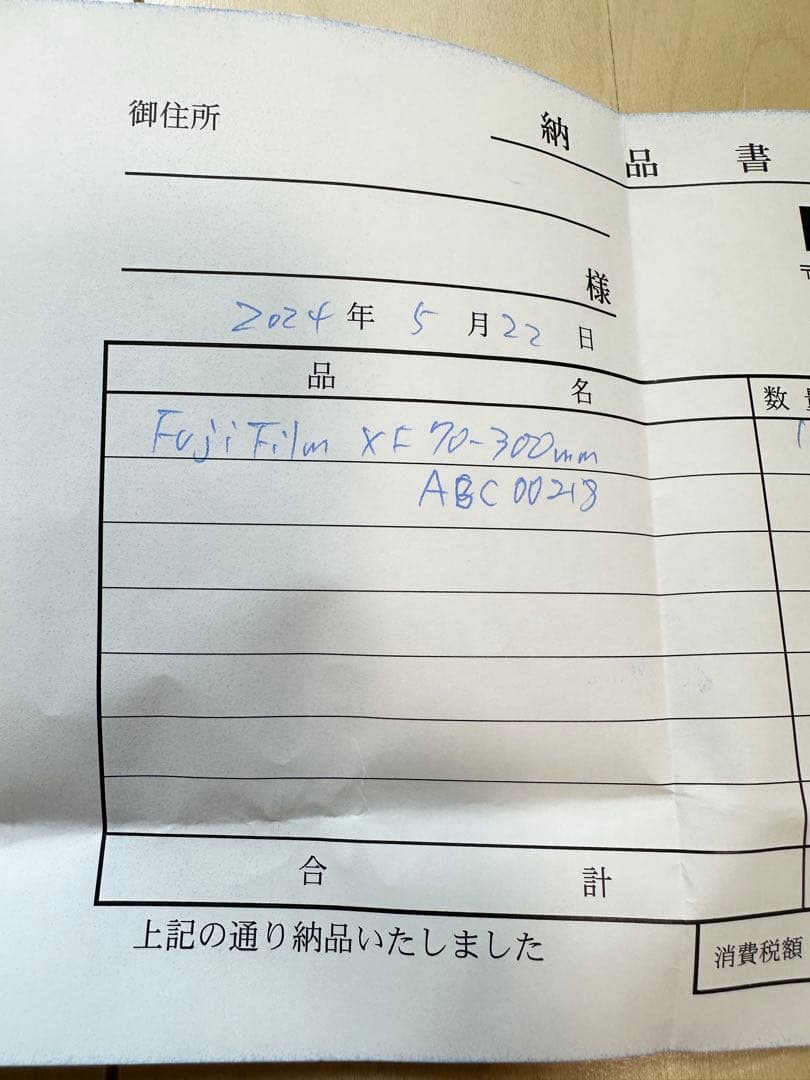 御住所
納品書
様
2024年5月22日
品名
数
FujiFilm XF 70-300mm
1
ABC 00218
合計
上記の通り納品いたしました
消費税額
〒